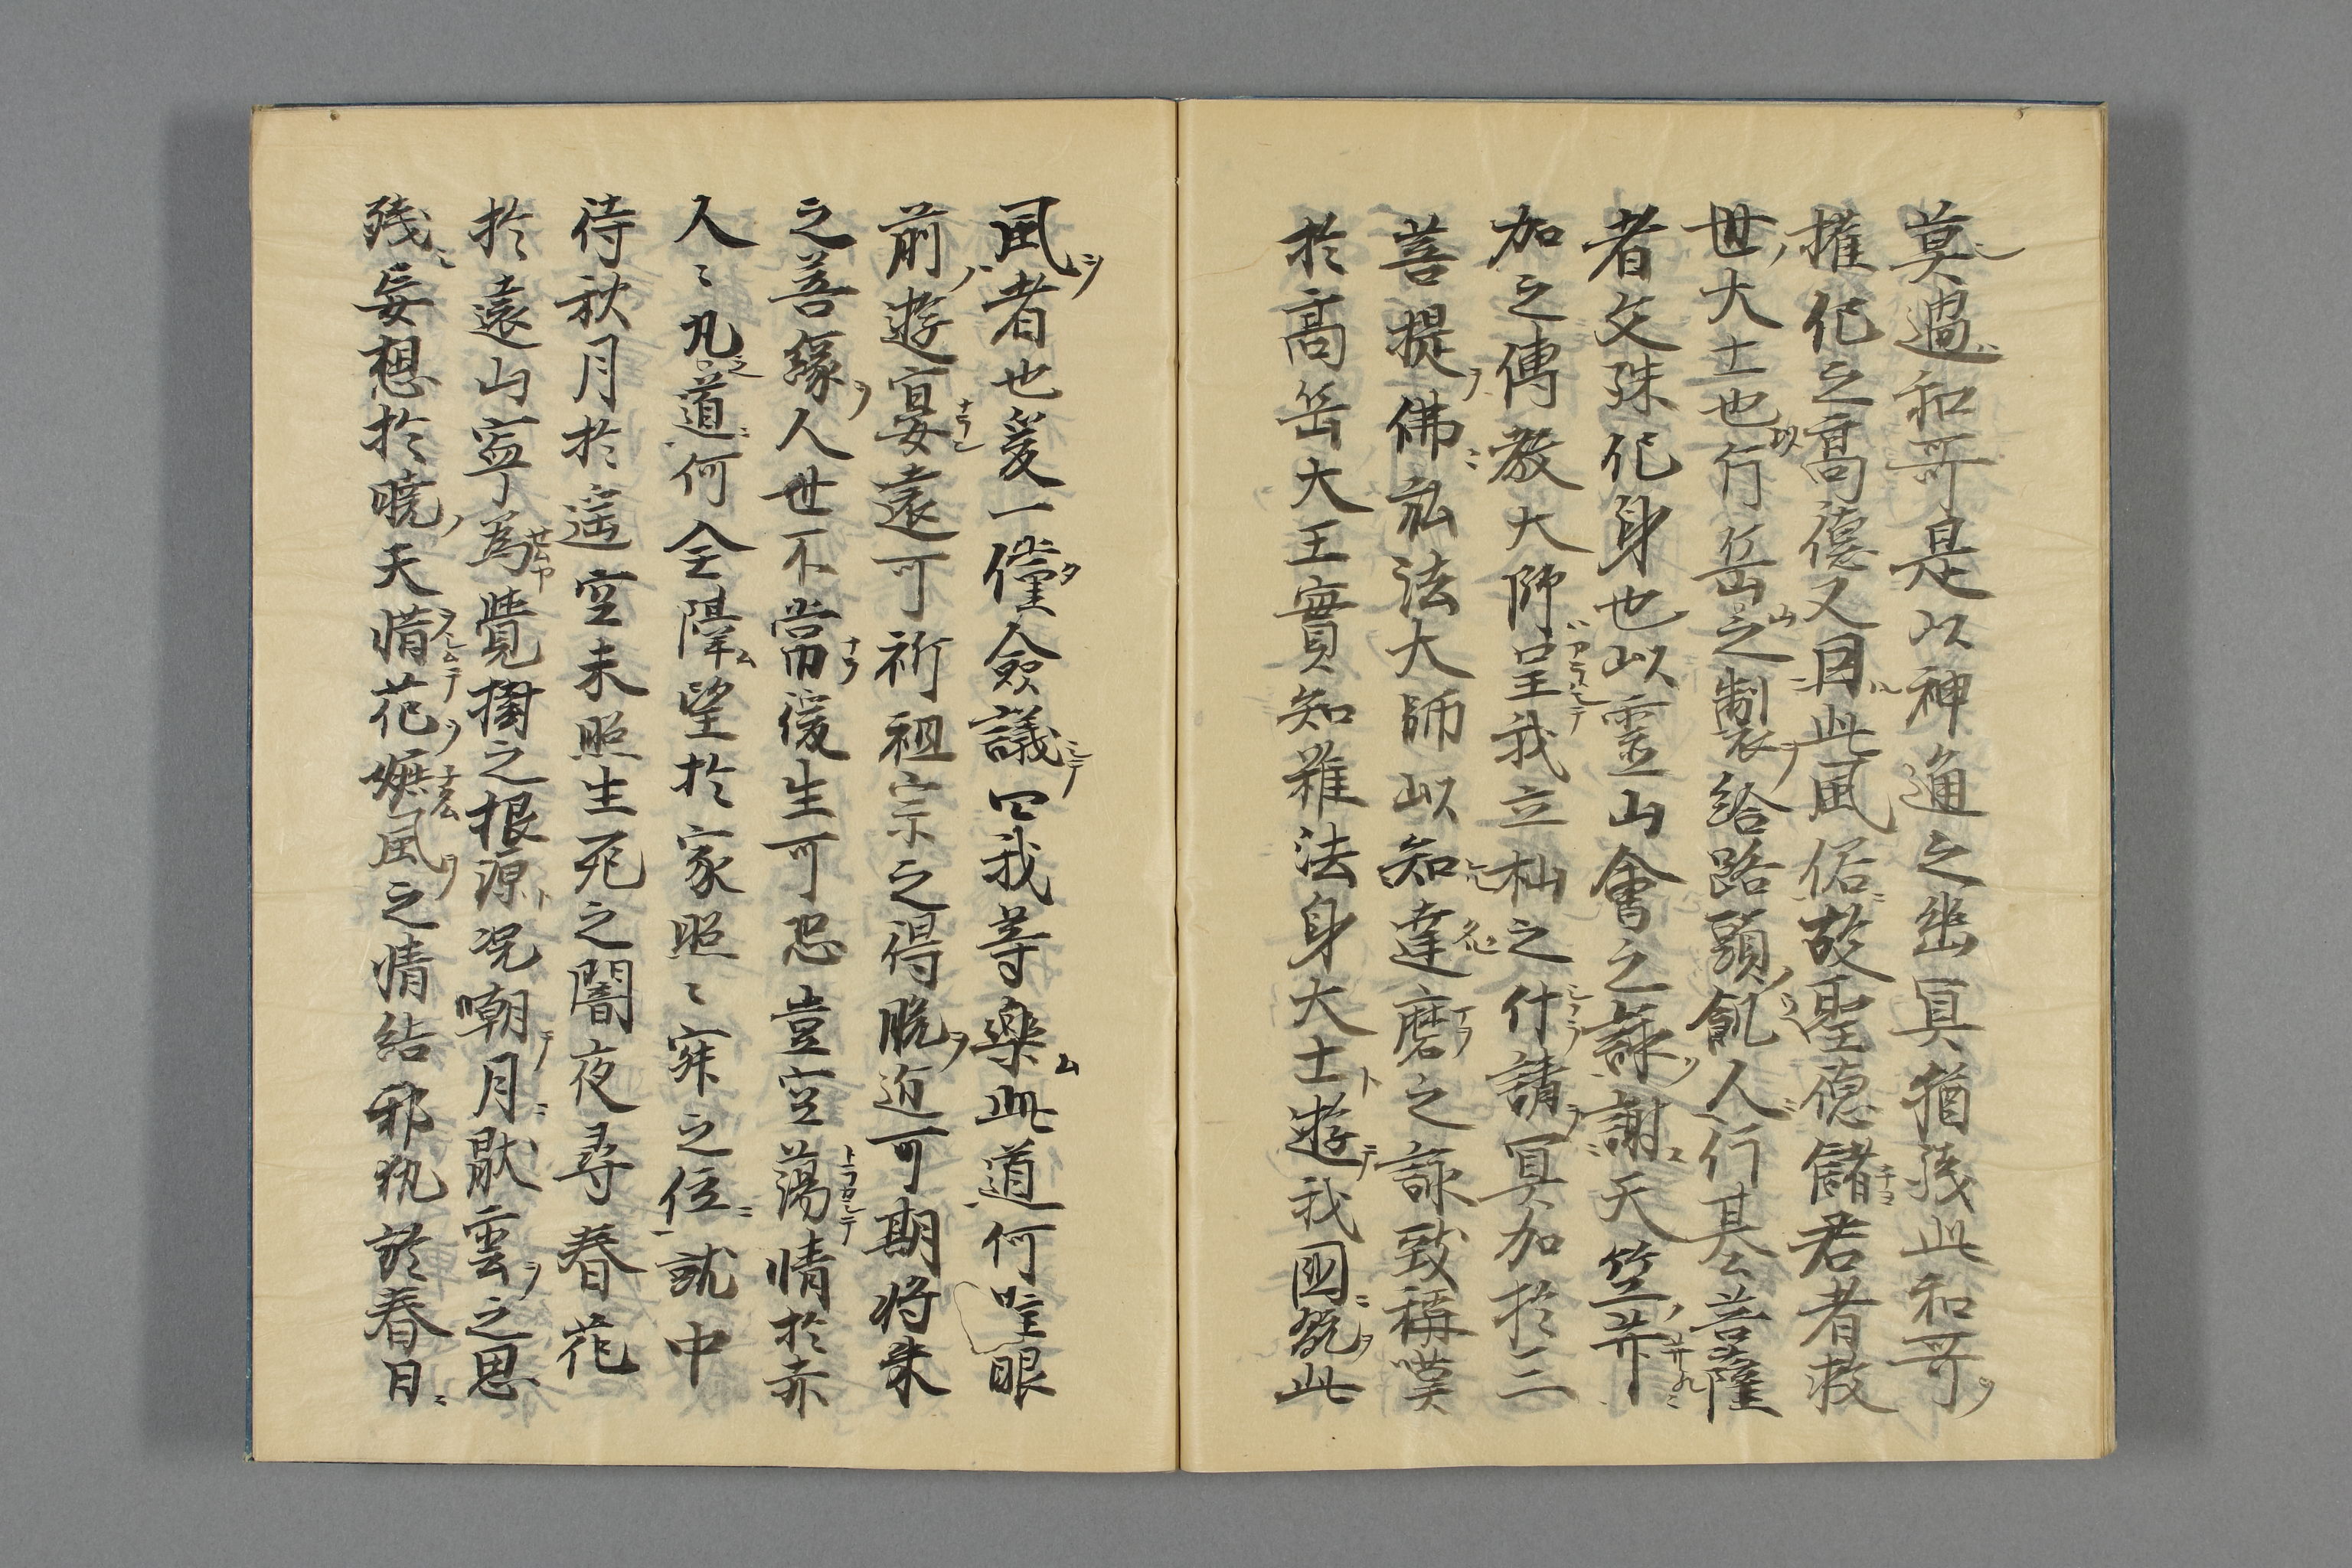 莫過和哥是以神通之幽冥猶翫此和哥
権化之高德又因此風俗故聖德儲君者救
世大士也行岳之製給路頭飢人行基菩薩
者文殊化身也以霊山會之詠謝天竺并
加之傳教大師呈我立杣之什請冥加於三
菩提佛弘法大師以知達磨之詠致稱嘆
於高岳大王實知雖法身大士遊我國翫此
風者也爰一儻僉議曰我等樂此道何唯眼
前遊宴遠可祈祖宗之得脱近可期将来
之善緣人世不常後生可恐豈空蕩情於赤
人之凡道何全隔望於家照之寂之位就中
待秋月於遥空未照生死之闇夜尋春花
於遠山寧為覺樹之根源况嘲月猒雲之思
残妄想於曉天惜花嫉風之情結邪執於春日